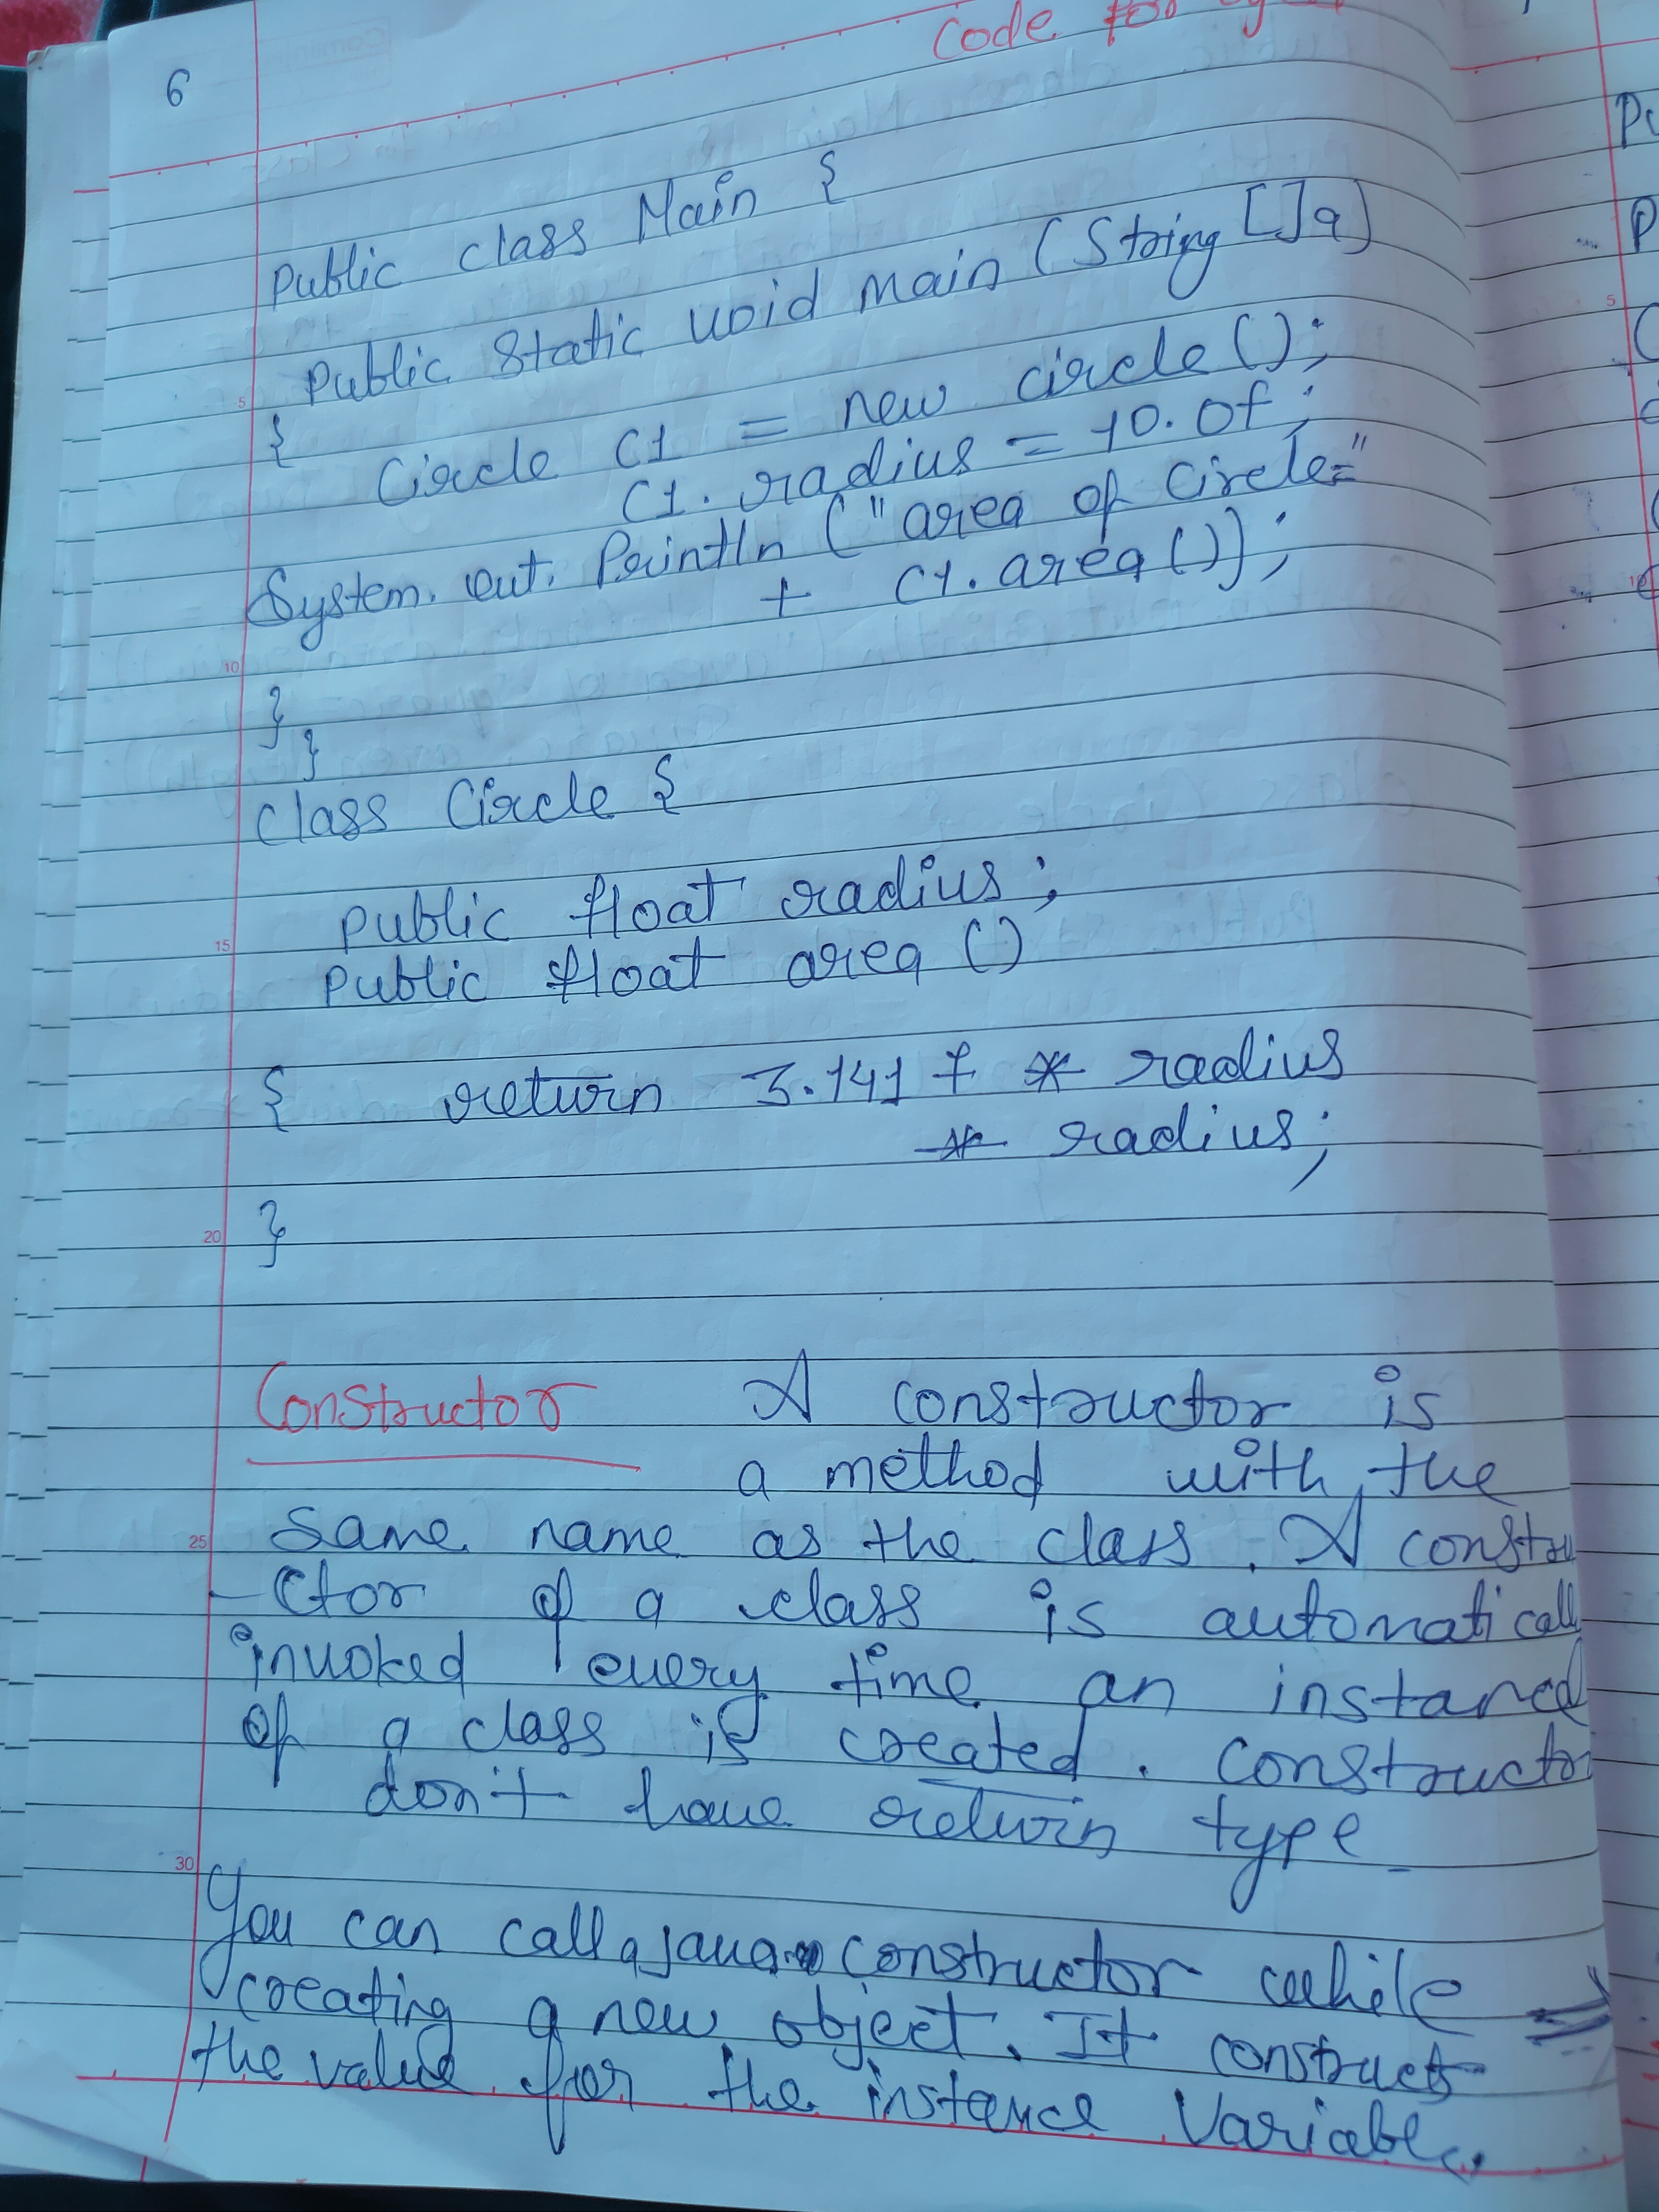 Code for
6
Public class Main {
Public Static void main (String []a)
{
Circle C1 = new circle ();
C1. radius = 10.0f ;
System. out. Println ("area of Circle="
+ C1. area ()};
}
}
class Circle {
public float radius ;
public float area ()
{ return 3.141 f * radius
* radius;
}
Constructor A constructor is
a method with the
Same name as the class . A constru
-ctor of a class is automaticall
invoked every time an instance
of a class is created . Constructor
don't have return type
You can call a java constructor while
creating a new object. It constructs
the value for the instance Variable.